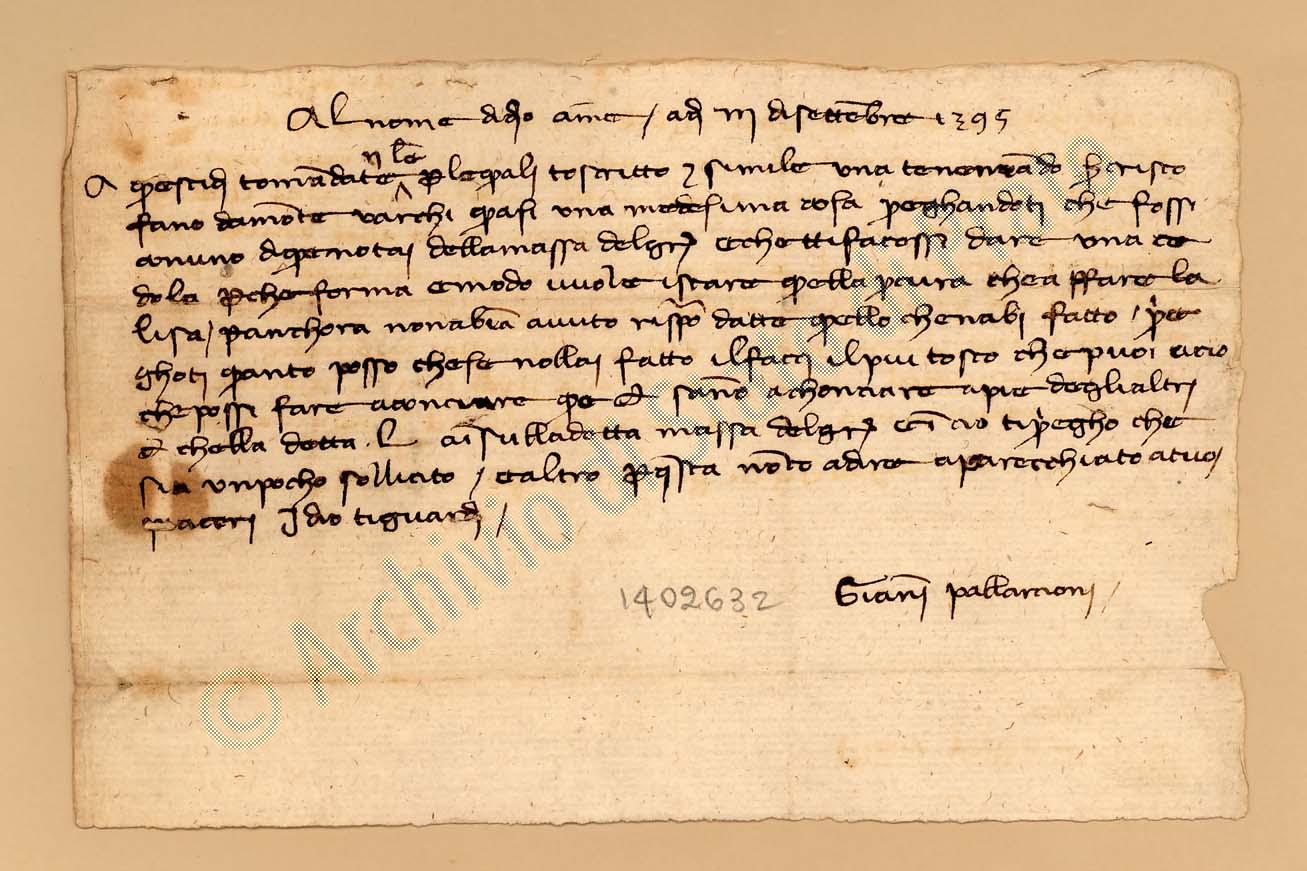 Al nome di dio ame / adi III di settenbre 1395
A questi di to mandate n lte p le quali to scritto e simile una te ne mando s cristo
fano da monte varchi quasi una medesima chosa preghandoti che fossi
con uno di que notai della massa del gr e che tti facessi dare una ce
dola p che forma e modo vuole istare quella pchura che a ffare la
lisa / p anchora non abia avuto rispo da tte quello che n abi fatto / prie
ghoti quanto posso che se nollai fatto il facci il piu tosto che puoi acio
che possi fare aconciare que d sanno a chonciare a pie degli altri
d che lla detta L ai sulla detta massa del gr e in cio ti priegho che
sia un pocho sollicito / e altro p questa non to a dire aparecchiato a tuoi
piaceri Idio ti guardi /
1402632
Giani pallarcioni /
© Archivio di Stato di Prato